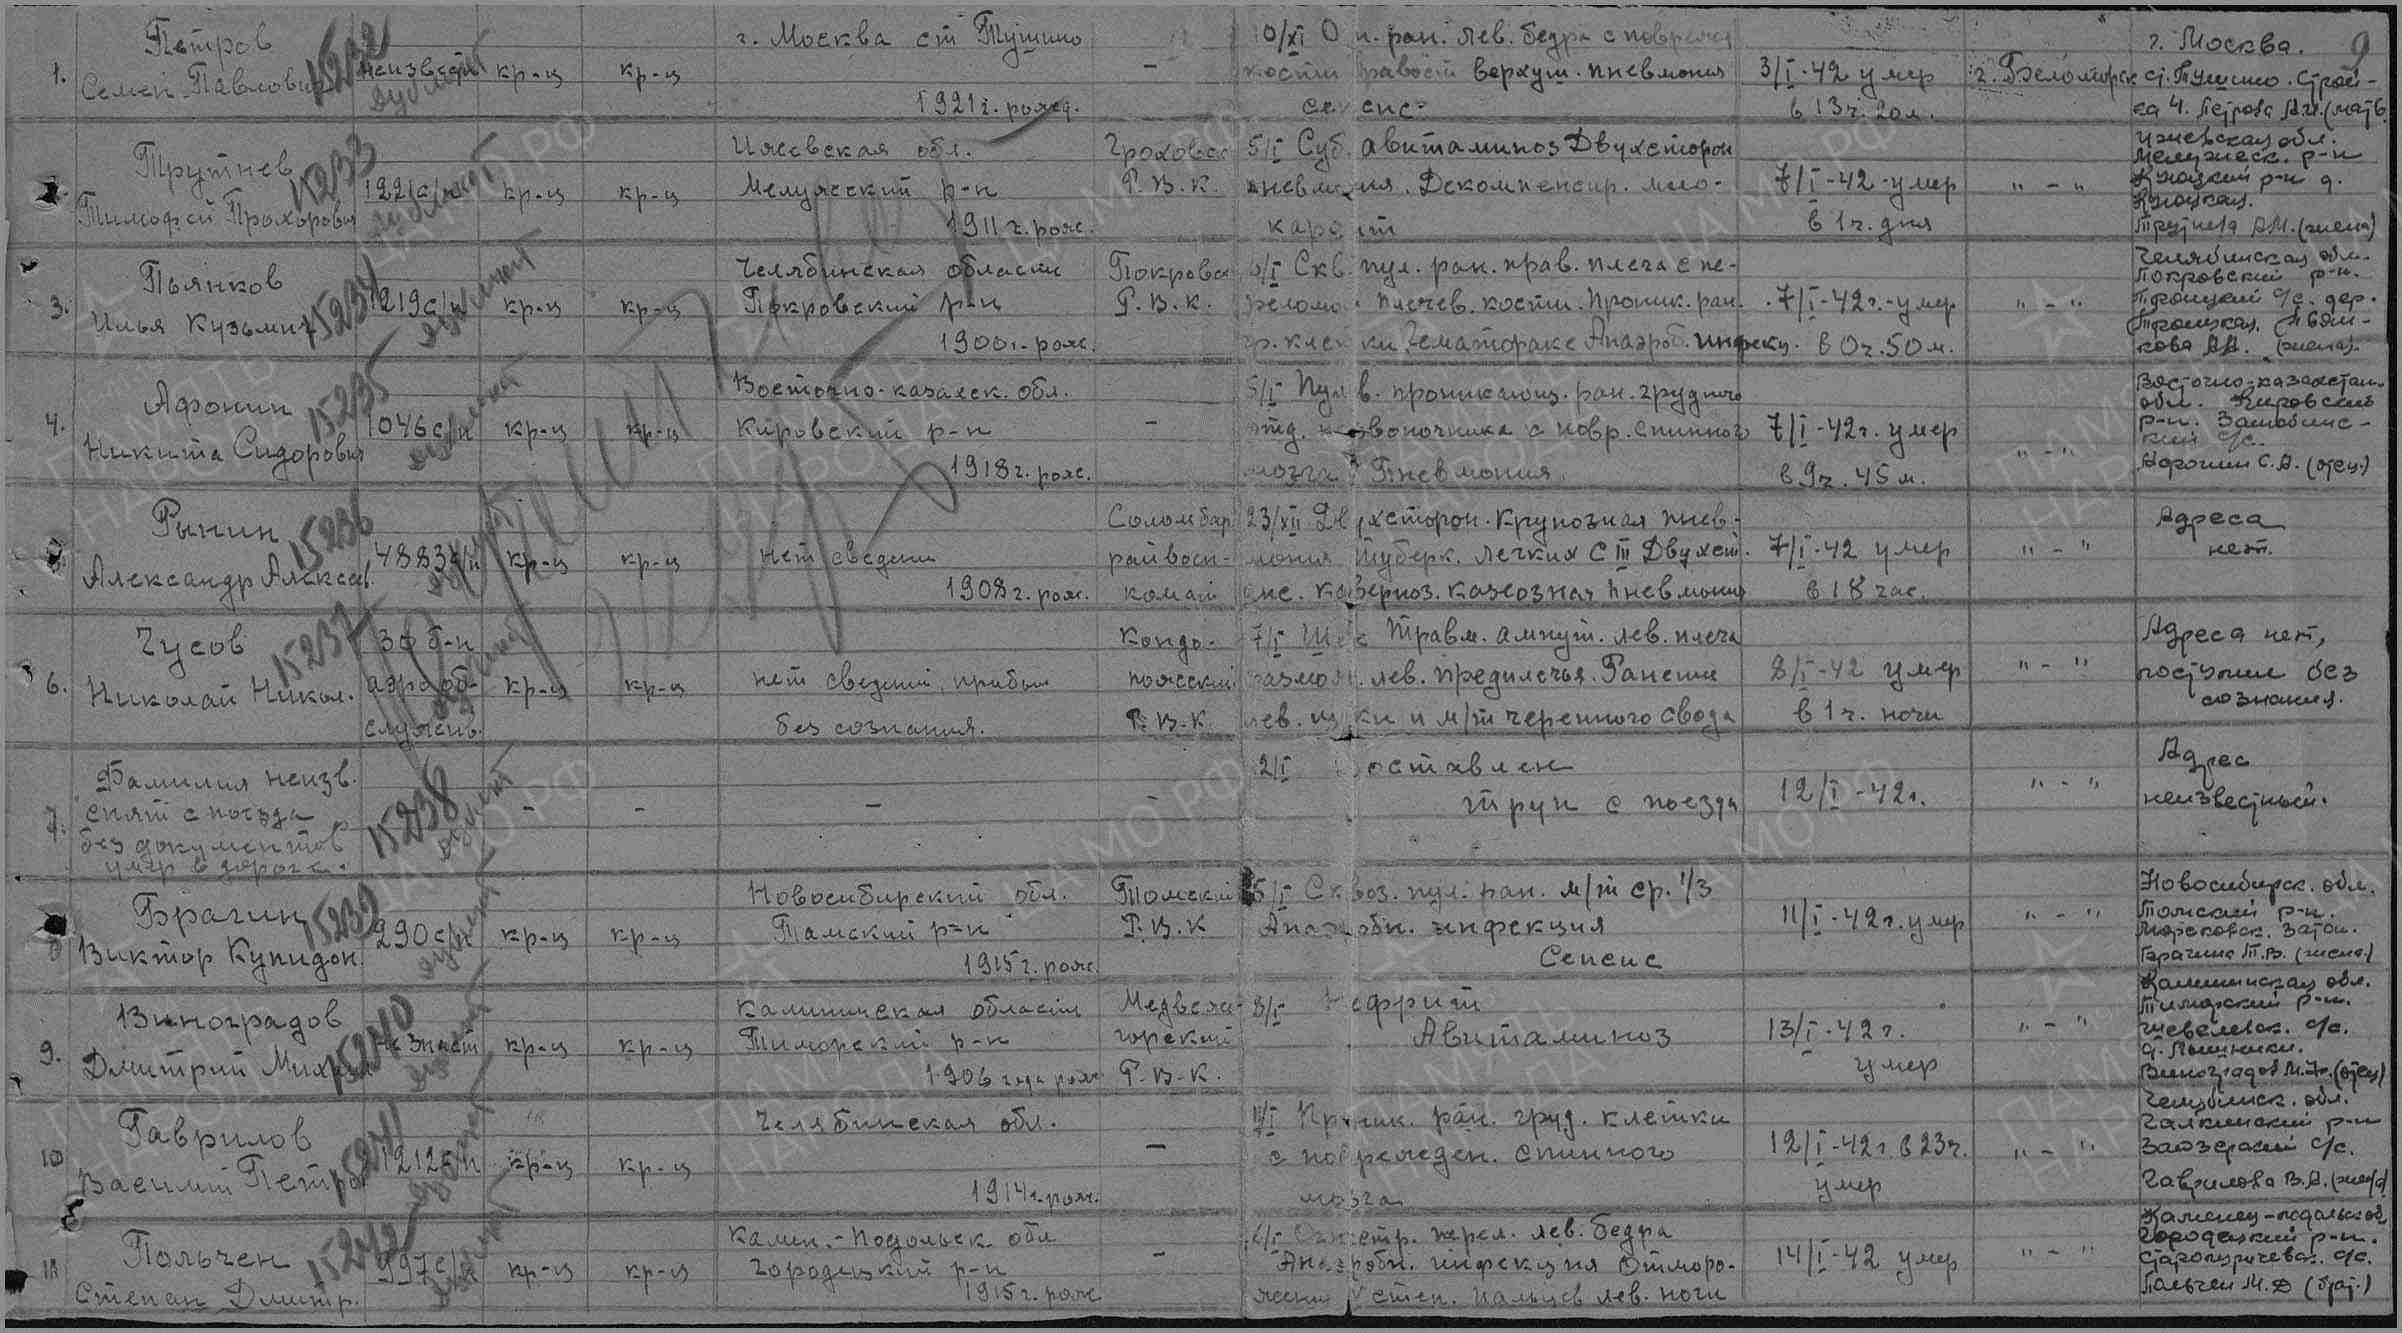 1.
Петров
Семен Павлович
15232
неизвест
дубликат
кр-ц
кр-ц
г. Москва ст Тушино
1921г. рожд.
-
верхуш. пневмония
3/I-42 умер
в 13ч. 20м.
г. Беломорск
г. Москва.
ст. Тушино. Строй-
ка 4. Петрова
9
Трутнев
Тимофей Прохорович
15233
1221 с/п
дубликат
кр-ц
кр-ц
Ижевская обл.
р-н
1911 г. рож.
Р.В.К.
5/I Суб. авитаминоз Двухсторон
пневмония. Декомпенсир. мио-
кардит
7/I-42-умер
в 1ч. дня
" - "
Ижевская обл.
р-н
Трутнева А.М. (жена)
3.
Пьянков
Илья Кузьмич
15234
1219 с/п
дубликат
кр-ц
кр-ц
Челябинская область
Покровский р-н
1900г. рож.
Покровск
Р.В.К.
6/I Скв. пул. ран. прав. плеча с пе-
релом. плечев. кости. Проник. ран.
гр. клетки. Гематоракс Анаэроб. инфекц.
7/I-42г.-умер
в 0ч. 50м.
" - "
Челябинская обл.
Покровский р-н.
Троицкий с/с. дер.
Троицкая. Пьян-
кова А.А. (жена).
4.
Афонин
Никита Сидорович
15235
1046 с/п
дубликат
кр-ц
кр-ц
Восточно-казахск. обл.
Кировский р-н
1918г. рож.
-
5/I Пулев. проникающ. ран. грудного
отд. позвоночника с повр. спинного
мозга Пневмония.
7/I-42г. умер
в 9ч. 45м.
" - "
Восточно-казахстан.
обл. Кировский
р-н.
с/с.
Афонин С.А. (отец)
5.
Рынин
Александр Алексеев.
15236
4883 с/п
дубликат
кр-ц
кр-ц
нет сведени
1908г. рож.
Соломбал
райвоен-
комат
23/XII Двухсторон. крупозная пнев-
мония Туберк. легких с III Двухст.
каверноз. казеозная пневмония
7/I-42 умер
в 18 час.
" - "
Адреса
нет.
6.
Чусов
Николай Никол.
15237
б-н
аэрооб-
служив.
дубликат
кр-ц
кр-ц
нет сведений, прибыл
без сознания.
Кондо-
пожский
Р.В.К.
7/I Шок Травм. ампут. лев. плеча
размозж. лев. предплечья. Ранение
лев. щеки и м/т черепного свода
8/I-42 умер
в 1ч. ночи
" - "
Адреса нет,
поступил без
сознания.
7.
Фамилия неизв.
снят с поезда
без документов
умер в дороге.
15238
дубликат
-
-
-
-
12/I Доставлен
труп с поезда
12/I-42г.
" - "
Адрес
неизвестный.
8
Брагин
Виктор Купидон.
15239
290 с/п
дубликат
кр-ц
кр-ц
Новосибирский обл.
Томский р-н
1915г. рож.
Томский
Р.В.К
5/I Сквоз. пул. ран. м/т ср. 1/3
Анаэробн. инфекция
Сепсис
11/I-42г. умер
" - "
Новосибирск. обл.
Томский р-н.
Затон.
Брагина Т.В. (жена)
9.
Виноградов
Дмитрий Михайл
15240
не знает
дубликат
кр-ц
кр-ц
Калининская область
р-н
1906 года рож.
Медвежье-
горский
Р.В.К.
8/I Нефрит
Авитаминоз
13/I-42г.
умер
" - "
Калининская обл.
р-н.
с/с.
Виноградов (отец)
10
Гаврилов
Василий Петров
15241
1212 с/п
дубликат
кр-ц
кр-ц
Челябинская обл.
1914г. рож.
-
11/I Проник. ран. груд. клетки
с поврежден. спинного
мозга
12/I-42г. в 23ч.
умер
" - "
Челябинск. обл.
Галкинский р-н
Заозерский с/с.
Гаврилова В.А. (жена)
11
Польчен
Степан Дмитр.
15242
997 с/п
дубликат
кр-ц
кр-ц
Камен.-Подольск. обл
Городецкий р-н
1915г. рож.
-
Огнестр. перел. лев. бедра
Анаэробн. инфекция Отморо-
жение степ. пальцев лев. ноги
14/I-42 умер
" - "
Каменец-подольск об
Городецкий р-н.
с/с.
Польчен М.Д (брат.)
ПАМЯТЬ НАРОДА
ЦА МО РФ